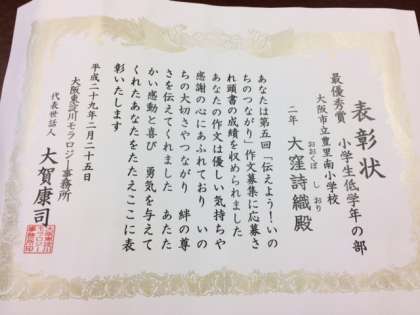 表彰状
最優秀賞 小学生低学年の部
大阪市立豊里南小学校
二年 大窪詩織殿
おおくぼ しおり
あなたは第五回「伝えよう！いの
ちのつながり」作文募集に応募さ
れ頭書の成績を収められました
あなたの作文は優しい気持ちや
感謝の心にあふれており いの
ちの大切さやつながり 絆の尊
さを伝えてくれました あたた
かい感動と喜び 勇気を与えて
くれたあなたをたたえここに表
彰いたします
平成二十九年二月二十五日
大阪東淀川モラロジー事務所
代表世話人 大賀康司
大阪東淀川モラロジー事務所印